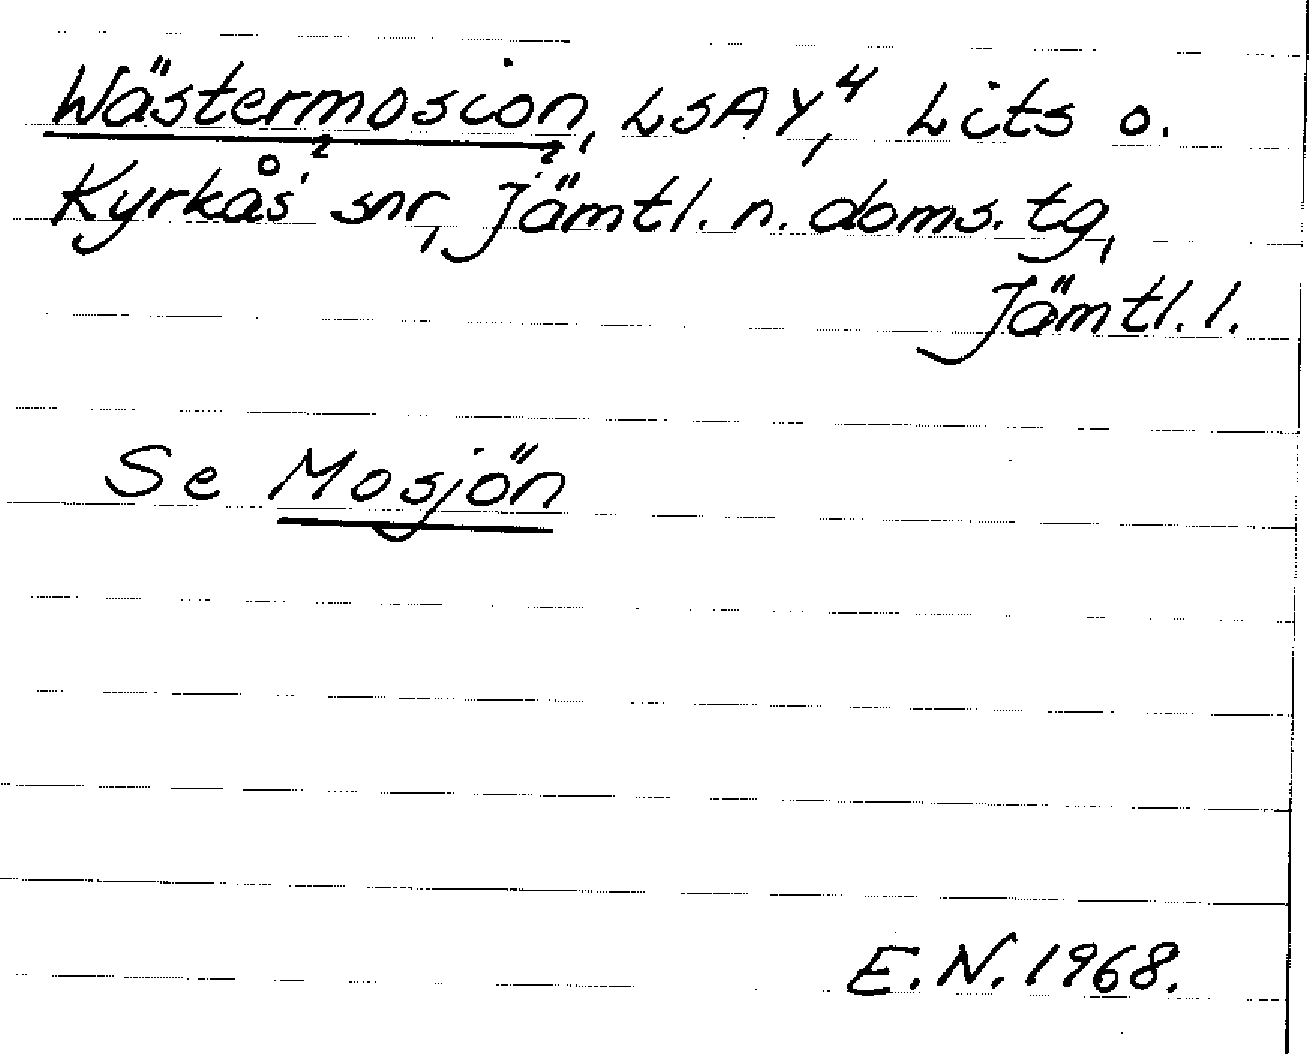 Wästermosion, LSA Y,4 Lits o.
Kyrkås' snr, Jämtl. n. doms. tg,
Jämtl. l.
Se Mosjön
E.N. 1968.